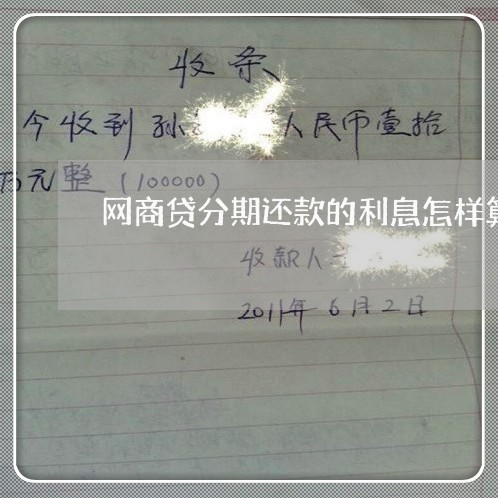 收条
今收到孙 人民币壹拾
万元整（100000）
网商贷分期还款的利息怎样算
收款人
2011年6月2日